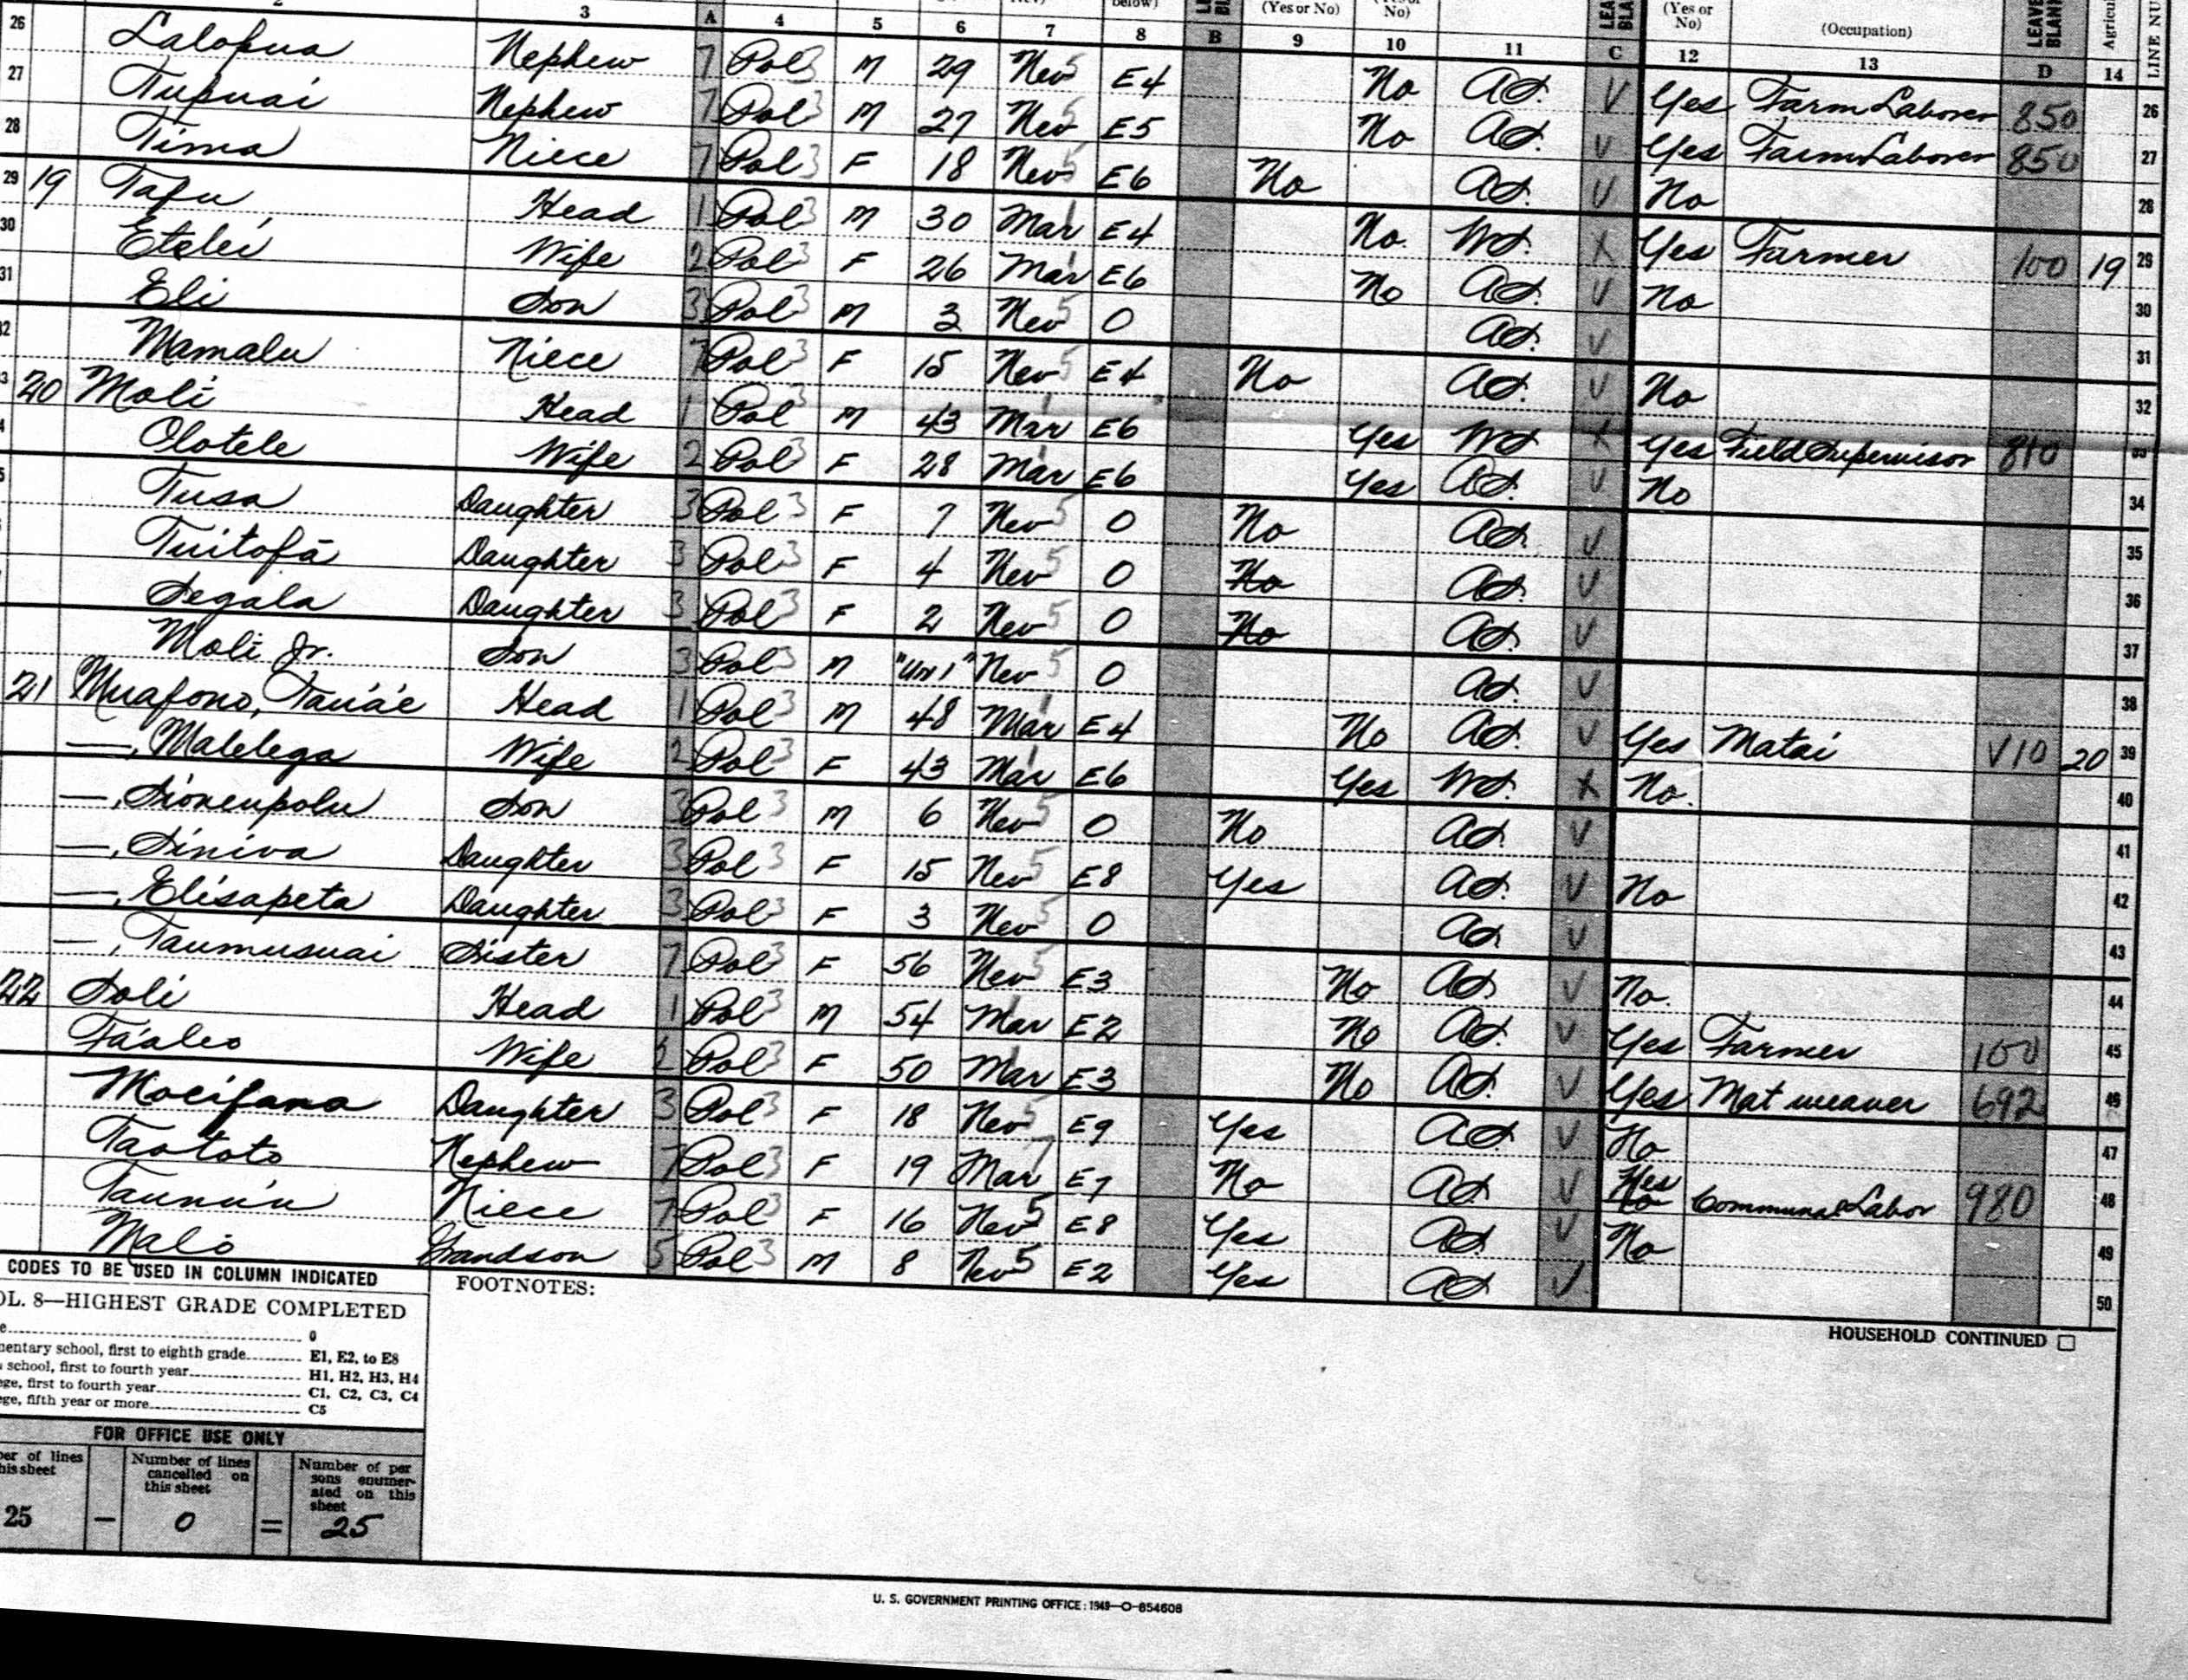 2 3 A 4 5 6 7 8 B (Yes or No) 9 No) 10 11 C (Yes or No) 12 (Occupation) 13 LEAVE BLANK D Agricul 14 LINE NU
26 Lalopua Nephew 7 Pol 3 M 29 Nev 5 E4 No AS. V Yes Farm Laborer 850 26
27 Tupuai Nephew 7 Pol 3 M 27 Nev 5 E5 No AS. V Yes Farm Laborer 850 27
28 Tima Niece 7 Pol 3 F 18 Nev 5 E6 No AS. V No 28
29 19 Tafu Head 1 Pol 3 M 30 Mar 1 E4 No. WS. X Yes Farmer 100 19 29
30 Etelei Wife 2 Pol 3 F 26 Mar 1 E6 No AS. V No 30
31 Eli Son 3 Pol 3 M 3 Nev 5 0 AS. V 31
32 Mamalu Niece 7 Pol 3 F 15 Nev 5 E4 No AS. V No 32
3 20 Moli Head 1 Pol 3 M 43 Mar 1 E6 Yes WS X Yes Field Supervisor 810 33
4 Olotele Wife 2 Pol 3 F 28 Mar 1 E6 Yes AS. V No 34
5 Tusa Daughter 3 Pol 3 F 7 Nev 5 0 No AS. V 35
Tuitofā Daughter 3 Pol 3 F 4 Nev 5 0 No AS. V 36
Segala Daughter 3 Pol 3 F 2 Nev 5 0 No AS. V 37
Moli Jr. Son 3 Pol 3 M "Un 1" Nev 5 0 AS. V 38
21 Muafono, Taua'e Head 1 Pol 3 M 48 Mar 1 E4 No AS. V Yes Matai V10 20 39
—, Malelega Wife 2 Pol 3 F 43 Mar 1 E6 Yes WS. X No. 40
—, Sioneupolu Son 3 Pol 3 M 6 Nev 5 0 No AS. V 41
—, Siniva Daughter 3 Pol 3 F 15 Nev 5 E8 Yes AS. V No 42
—, Elisapeta Daughter 3 Pol 3 F 3 Nev 5 0 AS V 43
—, Taumusuai Sister 7 Pol 3 F 56 Nev 5 E3 No AS. V No. 44
22 Soli Head 1 Pol 3 M 54 Mar 1 E2 No AS. V Yes Farmer 100 45
Fa'aleo Wife 2 Pol 3 F 50 Mar 1 E3 No AS. V Yes Mat weaver 692 46
Moeifana Daughter 3 Pol 3 F 18 Nev 5 E9 Yes AS V No 47
Taototo Nephew 7 Pol 3 F 19 Mar 7 E7 No AS. V Yes No Communal Labor 980 48
Taunu'u Niece 7 Pol 3 F 16 Nev 5 E8 Yes AS V No 49
Malo Grandson 5 Pol 3 M 8 Nev 5 E2 Yes AS V 50
CODES TO BE USED IN COLUMN INDICATED
FOOTNOTES:
HOUSEHOLD CONTINUED
OL. 8—HIGHEST GRADE COMPLETED
e 0
mentary school, first to eighth grade E1, E2, to E8
school, first to fourth year H1, H2, H3, H4
ege, first to fourth year C1, C2, C3, C4
ege, fifth year or more C5
FOR OFFICE USE ONLY
ber of lines his sheet
25
—
Number of lines cancelled on this sheet
0
=
Number of per sons enumer- ated on this sheet
25
U. S. GOVERNMENT PRINTING OFFICE : 1949—O-854608